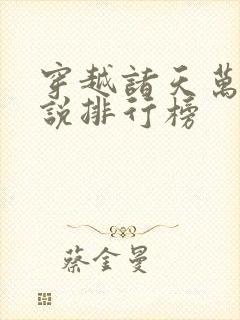 穿越諸天萬
說排行榜
蔡金曼